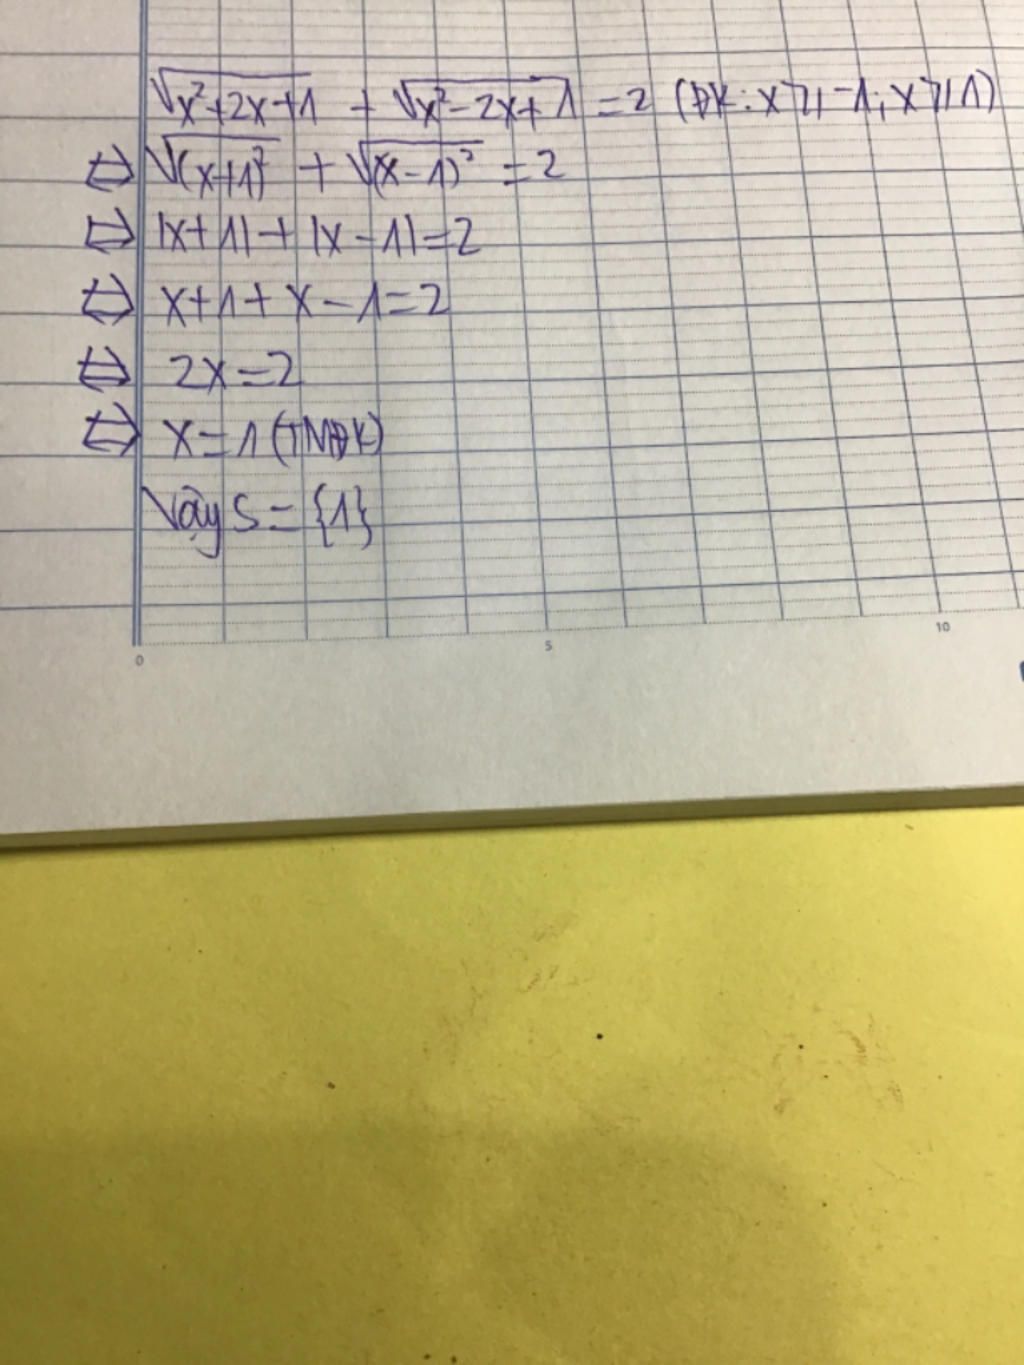 √x²+2x+1 + √x²-2x+1 = 2 (ĐK: x ≥ -1; x ≥ 1)
⇔ √(x+1)² + √(x-1)² = 2
⇔ |x+1| + |x-1| = 2
⇔ x+1+x-1=2
⇔ 2x=2
⇔ x=1 (TMĐK)
Vậy S = {1}
0 5 10